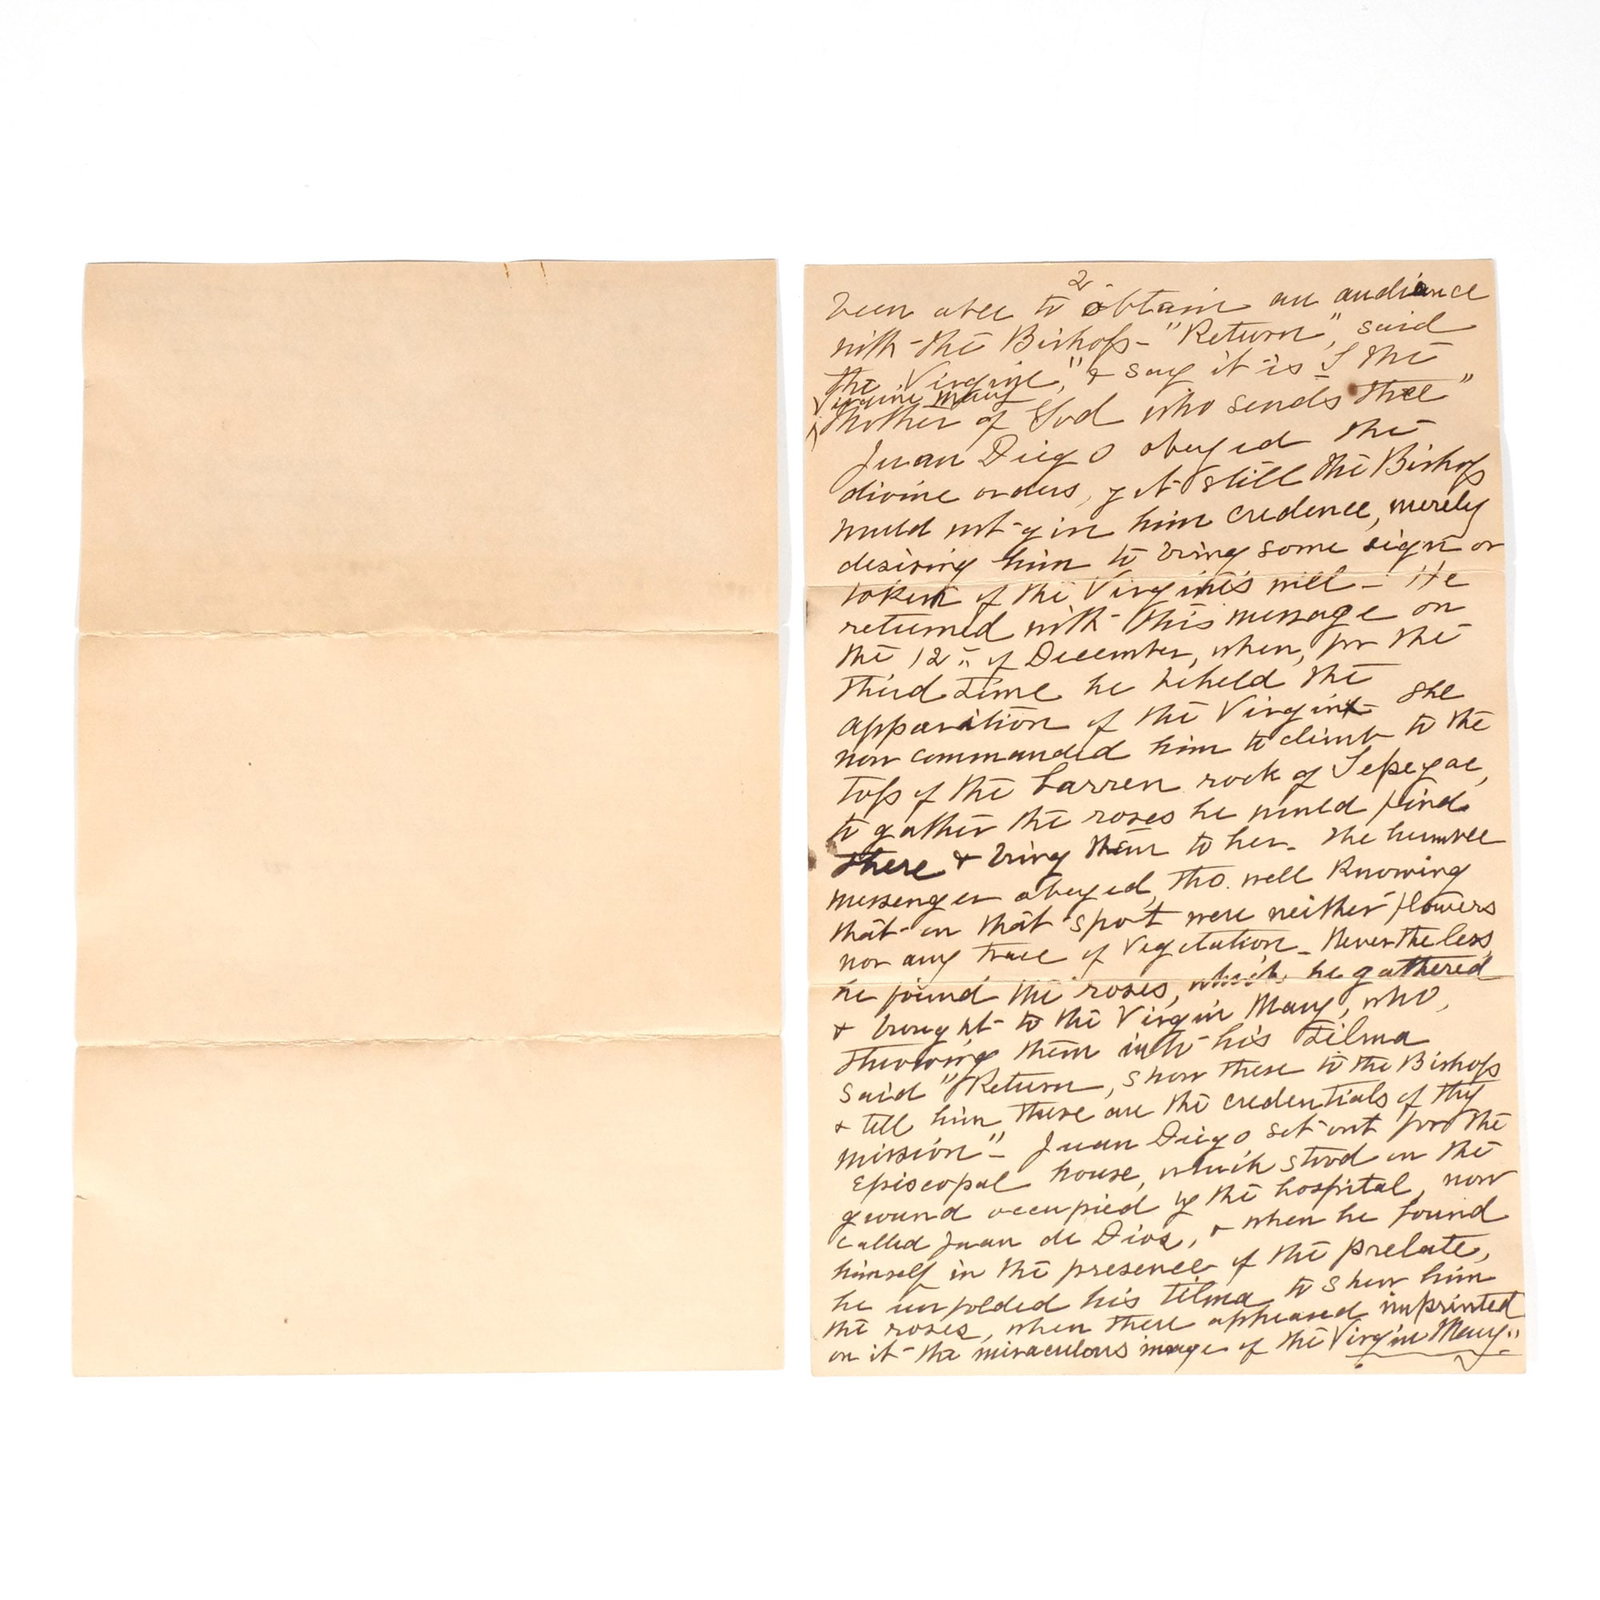 2
been able to obtain an audience
with the Bishop - "Return", said
the Virgine, "& say it is I the
Virgine Mary
Mother of God who sends thee"
Juan Diego obeyed the
divine orders, yet still the Bishop
would not give him credence, merely
desiring him to bring some sign or
token of the Virgine's will - He
returned with this message on
the 12" of December, when, for the
third time he beheld the
apparition of the Virgin She
now commanded him to climb to the
top of the barren rock of Tepeyac,
to gather the roses he would find
there & bring them to her - The humble
messenger obeyed, tho. well knowing
that on that spot were neither flowers
nor any trace of vegetation - Nevertheless,
he found the roses, which he gathered
& brought to the Virgin Mary, who,
throwing them into his Tilma
said "Return, show these to the Bishop
& tell him these are the credentials of thy
mission" - Juan Diego set out for the
Episcopal house, which stood on the
ground occupied by the hospital, now
called Juan de Dios, & when he found
himself in the presence of the prelate,
he unfolded his tilma to shew him
the roses, when there appeared imprinted
on it the miraculous image of the Virgin Mary."